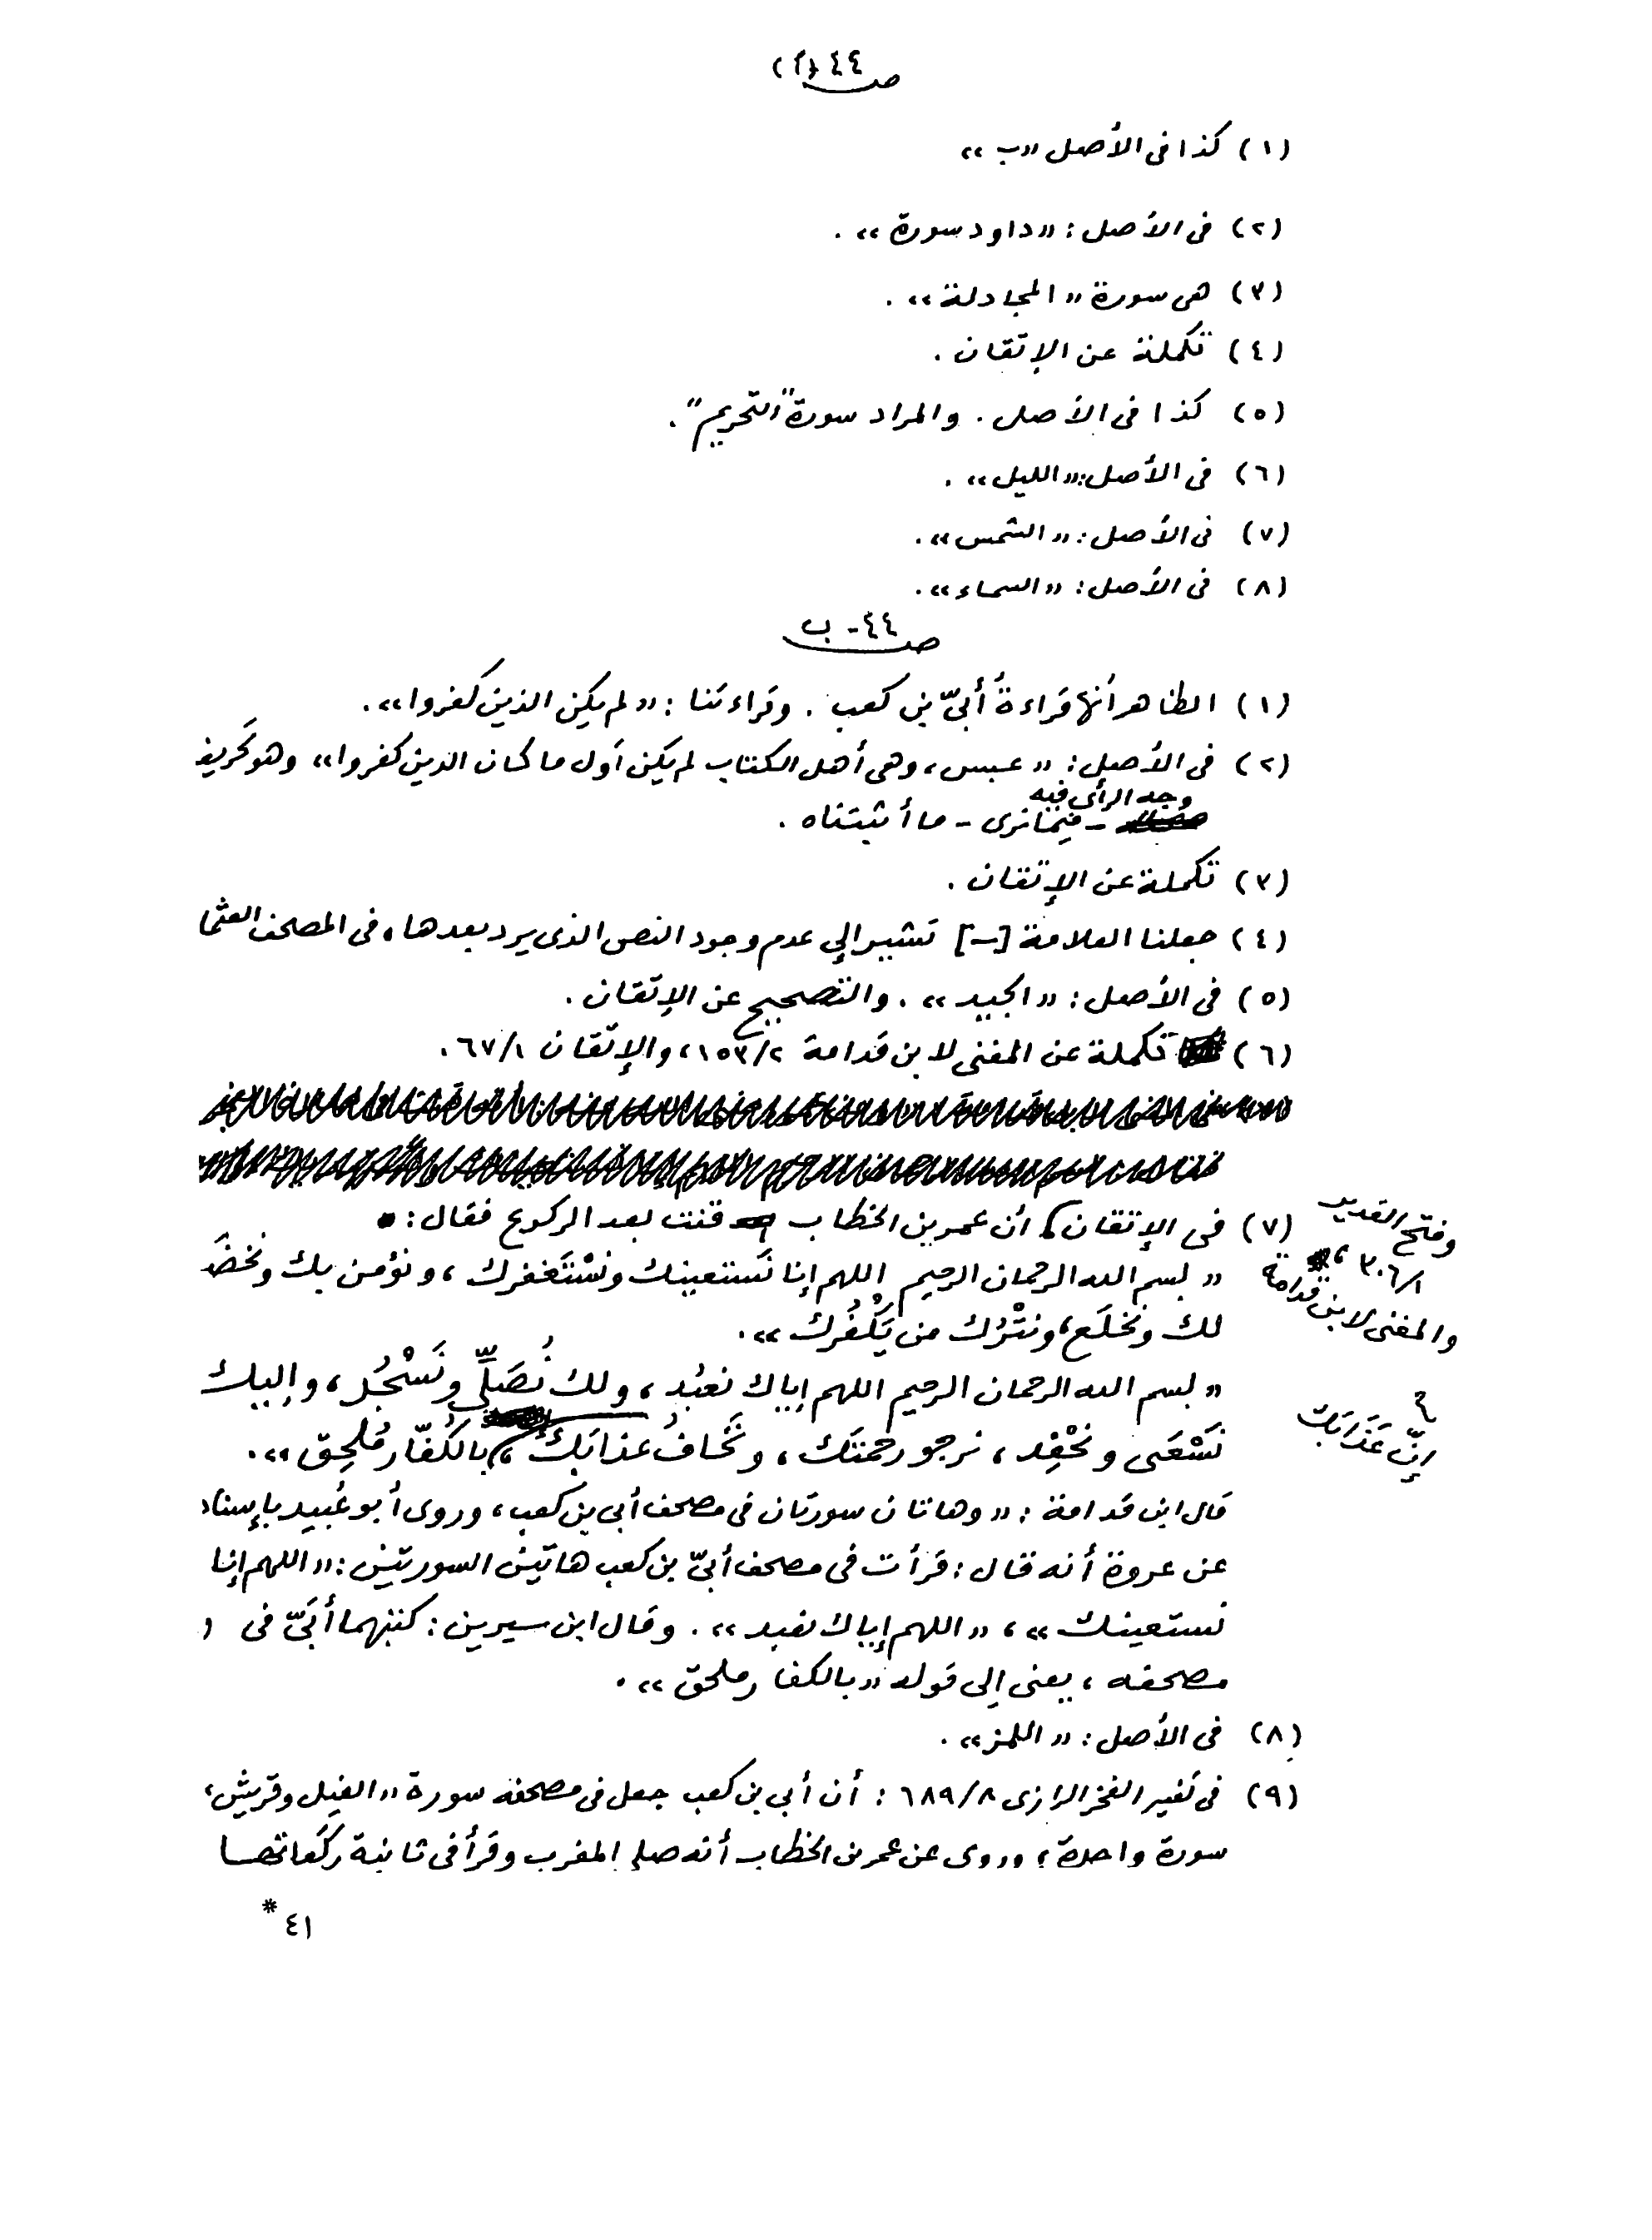 ص ٤٤ (أ)
(١) كذا فى الأصل «ب»
(٢) فى الأصل : «داود سورة» .
(٣) هى سورة «المجادلة» .
(٤) تكملة عن الإتقان .
(٥) كذا فى الأصل . والمراد سورة "التحريم" .
(٦) فى الأصل : «الليل» .
(٧) فى الأصل : «الشمس» .
(٨) فى الأصل : «السماء» .
ص ٤٤ - ب
(١) الظاهر أنها قراءة أُبىّ بن كعب . وقراءتنا : «لم يكن الذين كفروا» .
(٢) فى الأصل : «عبس ، وهى أهل الكتاب لم يكن أول ما كان الذين كفروا» وهو تحريف
وجه الرأى فيه
- فيما نرى - ما أثبتناه .
(٣) تكملة عن الإتقان .
(٤) جعلنا العلامة [-] تشير إلى عدم وجود النص الذى يرد بعدها ، فى المصحف العثما
(٥) فى الأصل : «الجيد» . والتصحيح عن الإتقان .
(٦) تكملة عن المغنى لابن قدامة ١٥٣/٢ ، والإتقان ٦٧/١ .
(٧) فى الإتقان أن عمر بن الخطاب قنت بعد الركوع فقال :
وفتح القدير
٣٠٦/١ ،
والمغنى لابن قدامة
«بسم الله الرحمان الرحيم اللهم إنا نَستعينك ونسْتَغفرك ، ونؤمن بك ونخضَ
لك ونخلَع ، ونتْرُك من يَكْفُرك» .
«بسم الله الرحمان الرحيم اللهم إياك نعبُد ، ولك نُصَلِّى ونَسْجُد ، وإليك
نَسْعَى ونحْفِد ، نرجو رحمتَك ، ونخَافُ عذابَك ، بالكُفّار مُلحِق» .
إنّ عَذَابَك
قال ابن قدامة : «وهاتان سورتان فى مصحف أبى بن كعب ، وروى أبو عُبيد بإسناد
عن عروة أنه قال : قرأت فى مصحف أبىّ بن كعب هاتين السورتين : «اللهم إنا
نستعينك» ، «اللهم إياك نعبد» . وقال ابن سيرين : كتبهما أُبَىّ فى
مصحفه ، يعنى إلى قوله «بالكفار ملحق» .
(٨) فى الأصل : «اللمز» .
(٩) فى تفسير الفخر الرازى ٦٨٩/٨ : أن أبى بن كعب جعل فى مصحفه سورة «الفيل وقريش ،
سورة واحدة ، وروى عن عمر بن الخطاب أنه صلى المغرب وقرأ فى ثانية ركعاتها
٤١ *